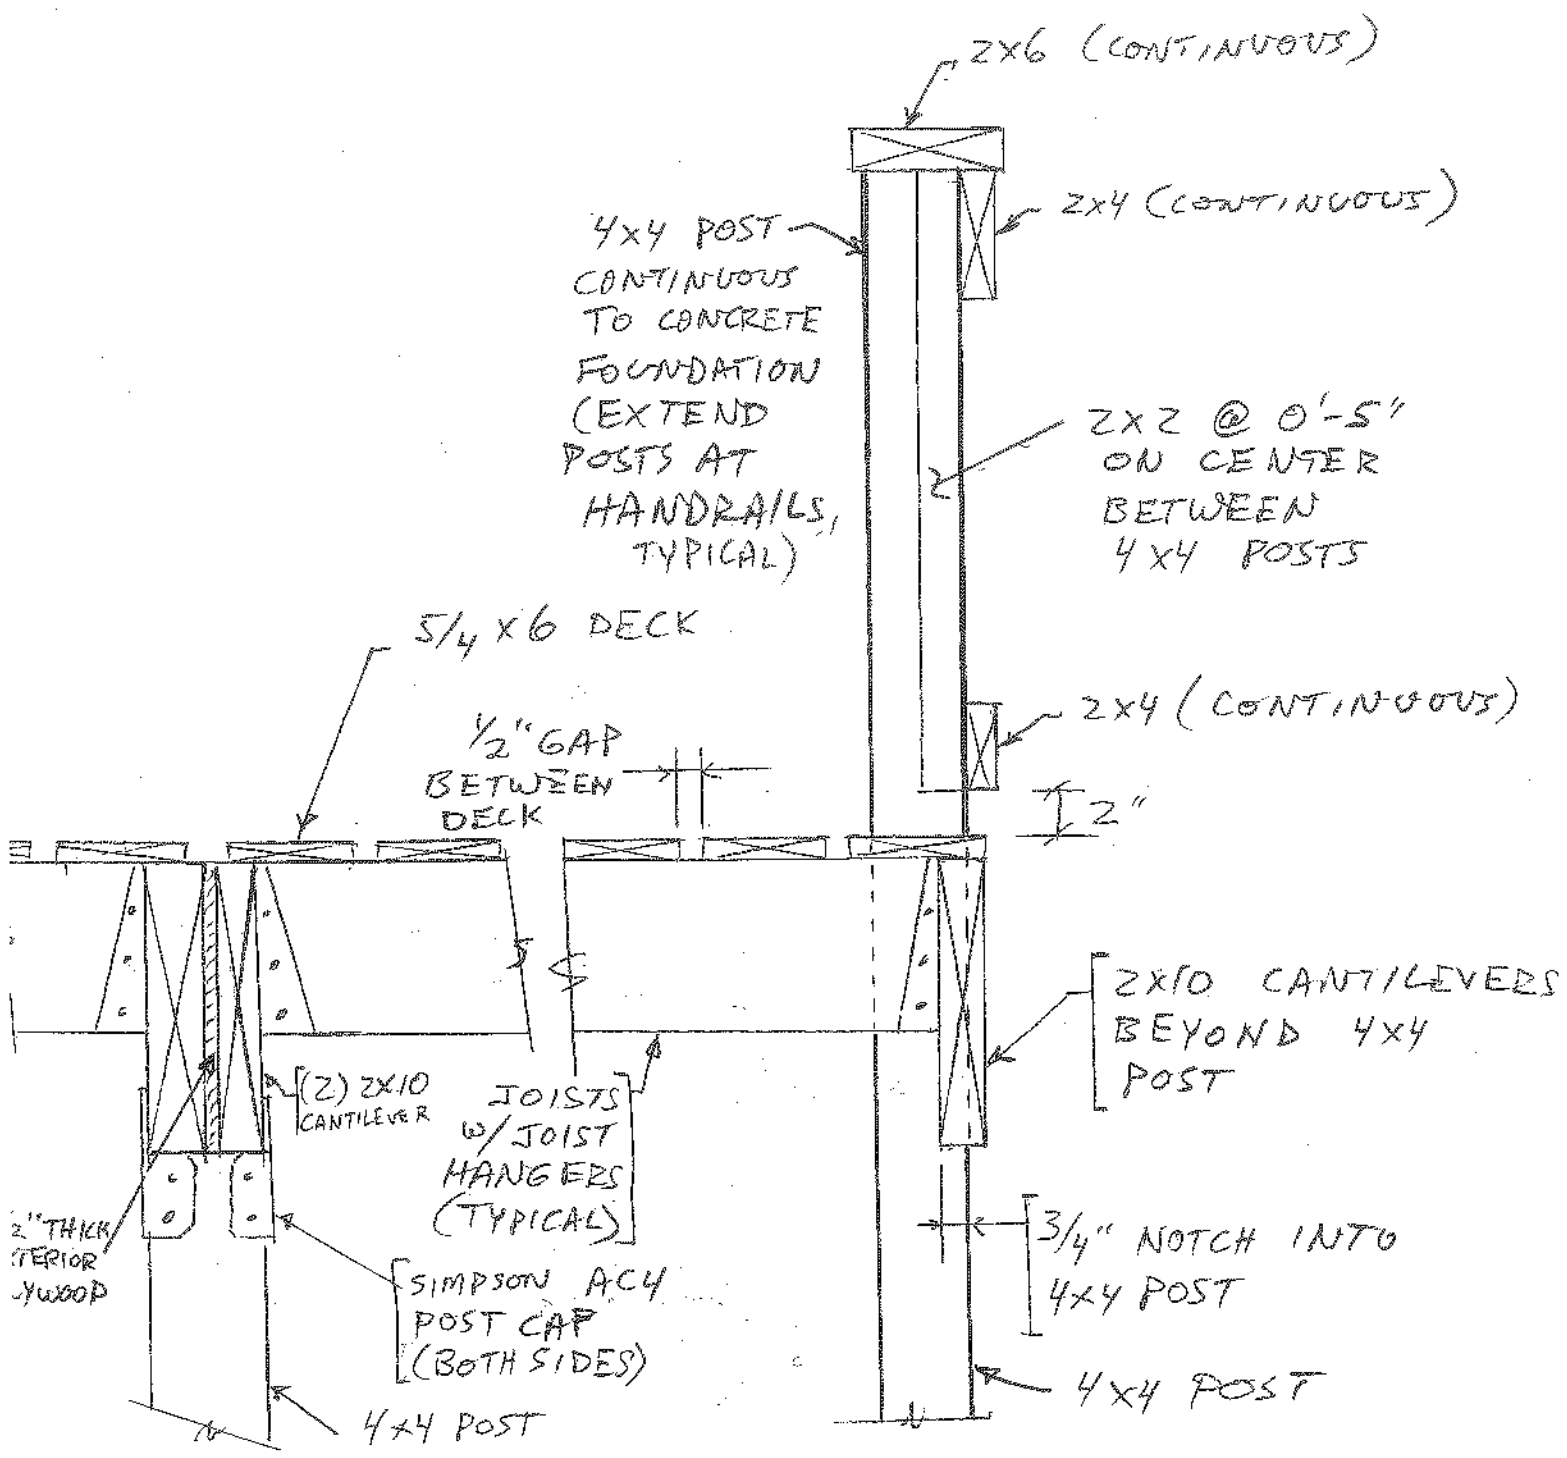 2X6 (CONTINUOUS)
2X4 (CONTINUOUS)
4X4 POST
CONTINUOUS
TO CONCRETE
FOUNDATION
(EXTEND
POSTS AT
HANDRAILS,
TYPICAL)
2X2 @ 0'-5"
ON CENTER
BETWEEN
4X4 POSTS
5/4 X 6 DECK
1/2" GAP
BETWEEN
DECK
2X4 (CONTINUOUS)
2"
2X10 CANTILEVERS
BEYOND 4X4
POST
(2) 2X10
CANTILEVER
JOISTS
W/JOIST
HANGERS
(TYPICAL)
2" THICK
TERIOR
YWOOD
SIMPSON AC4
POST CAP
(BOTH SIDES)
3/4" NOTCH INTO
4X4 POST
4X4 POST
4X4 POST